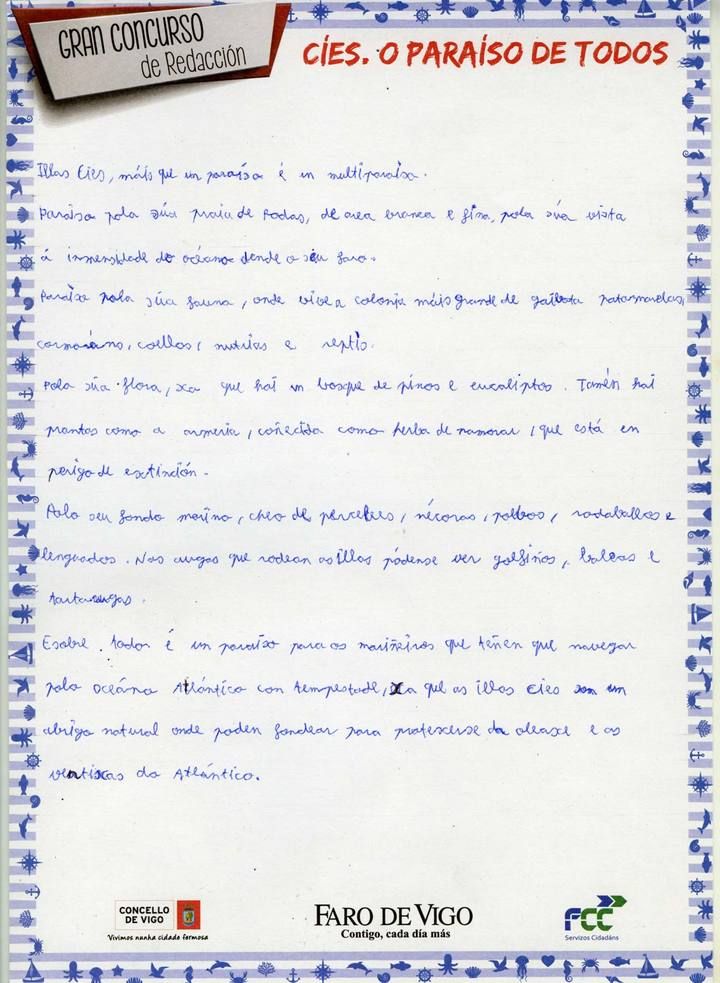 GRAN CONCURSO
de Redacción
CÍES. O PARAÍSO DE TODOS
Illas Cíes, máis que un paraíso é un multiparaíso.
Paraíso pola súa praia de Rodas, de area branca e fina, pola súa vista
á inmensidade do océano dende o seu faro.
Paraíso pola súa fauna, onde vive a colonia máis grande de gaibota patamarelas,
cormoráns, coellos, nutrias e reptís.
Pola súa flora, xa que hai un bosque de pinos e eucaliptos. Tamén hai
prantas como a armeria, coñecida como herba de namorar, que está en
perigo de extinción.
Polo seu fondo mariño, cheo de percebes, nécoras, polbos, rodaballos e
lenguados. Nas augas que rodean as illas pódense ver golfiños, baleas e
tartarugas.
E sobre todo é un paraíso para os mariñeiros que teñen que navegar
polo océano Atlántico con tempestade, xa que as illas Cíes son un
abrigo natural onde poden fondear para protexerse da oleaxe e as
ventiscas do Atlántico.
CONCELLO
DE VIGO
Vivimos nunha cidade fermosa
FARO DE VIGO
Contigo, cada día más
FCC
Servizos Cidadáns